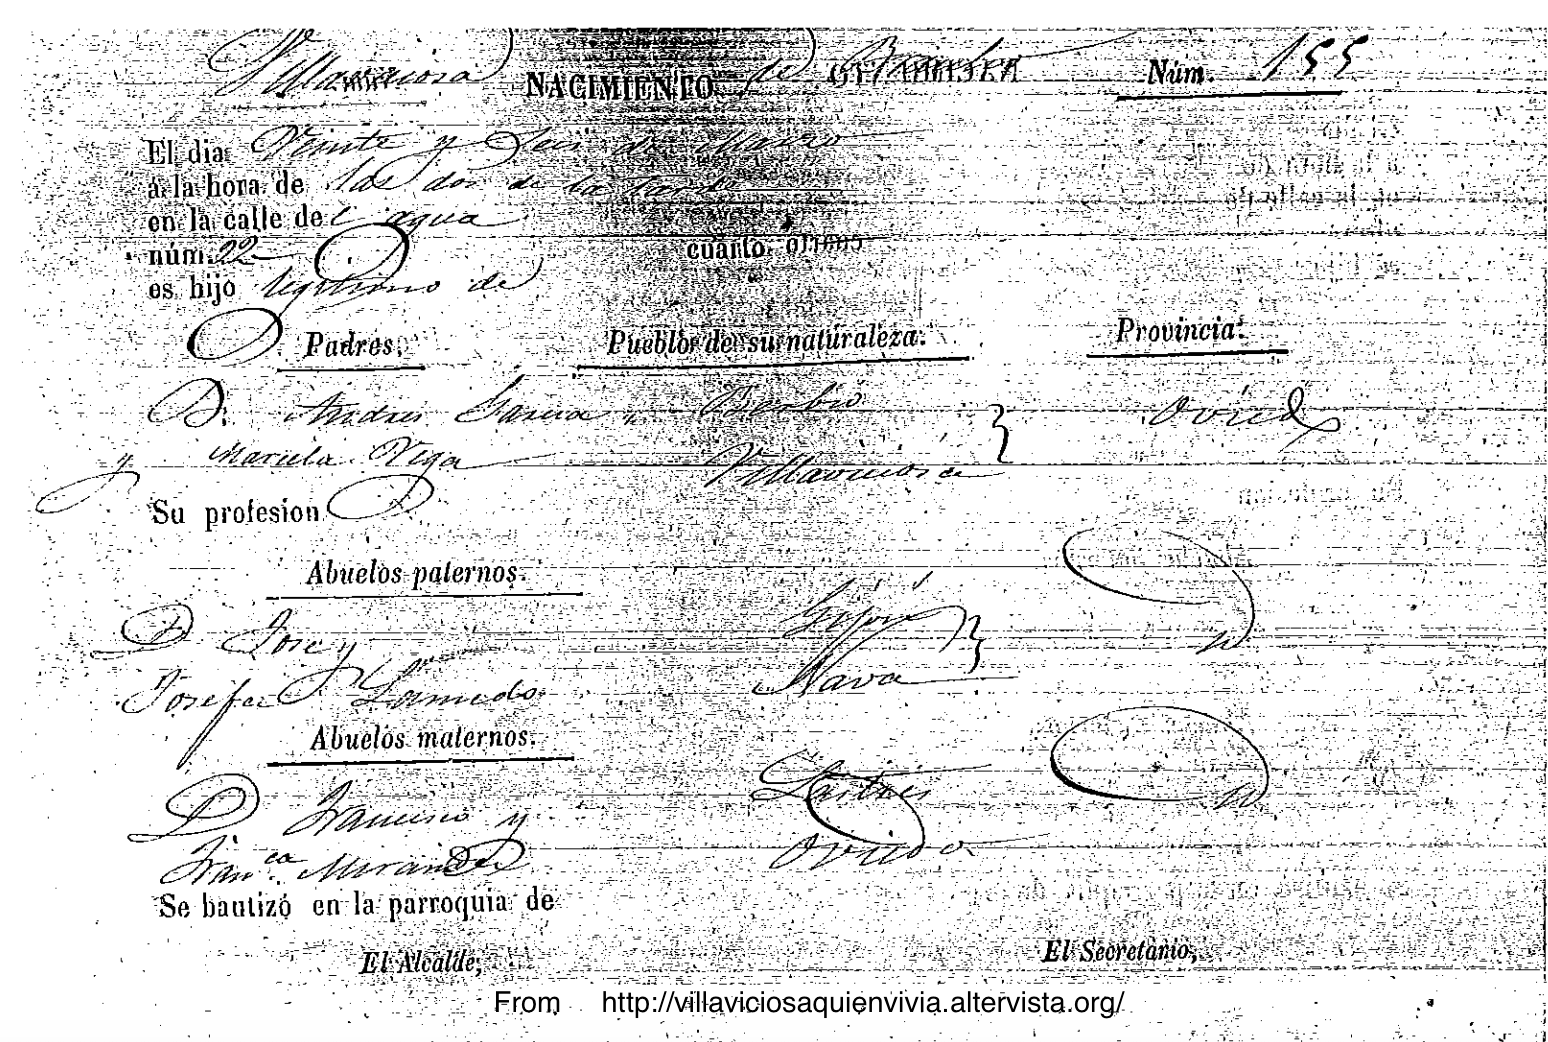 Villaviciosa NACIMIENTO de Núm. 155
El dia Veinte y Seis de Marzo
á la hora de las dos de la tarde
en la calle del agua
núm. 22 cuarto
es hijo legitimo de
Padres. Pueblo de su naturaleza. Provincia.
D. Andres Garcia y Oviedo
Mariela Vega Villaviciosa
Su profesion
Abuelos paternos.
D. Jose y Gijon id
Josefa Nava
Abuelos maternos.
D. Francisco y Lastres id
Fran.ca Miranda Oviedo
Se bautizó en la parroquia de
El Alcalde, El Secretario,
From http://villaviciosaquienvivia.altervista.org/